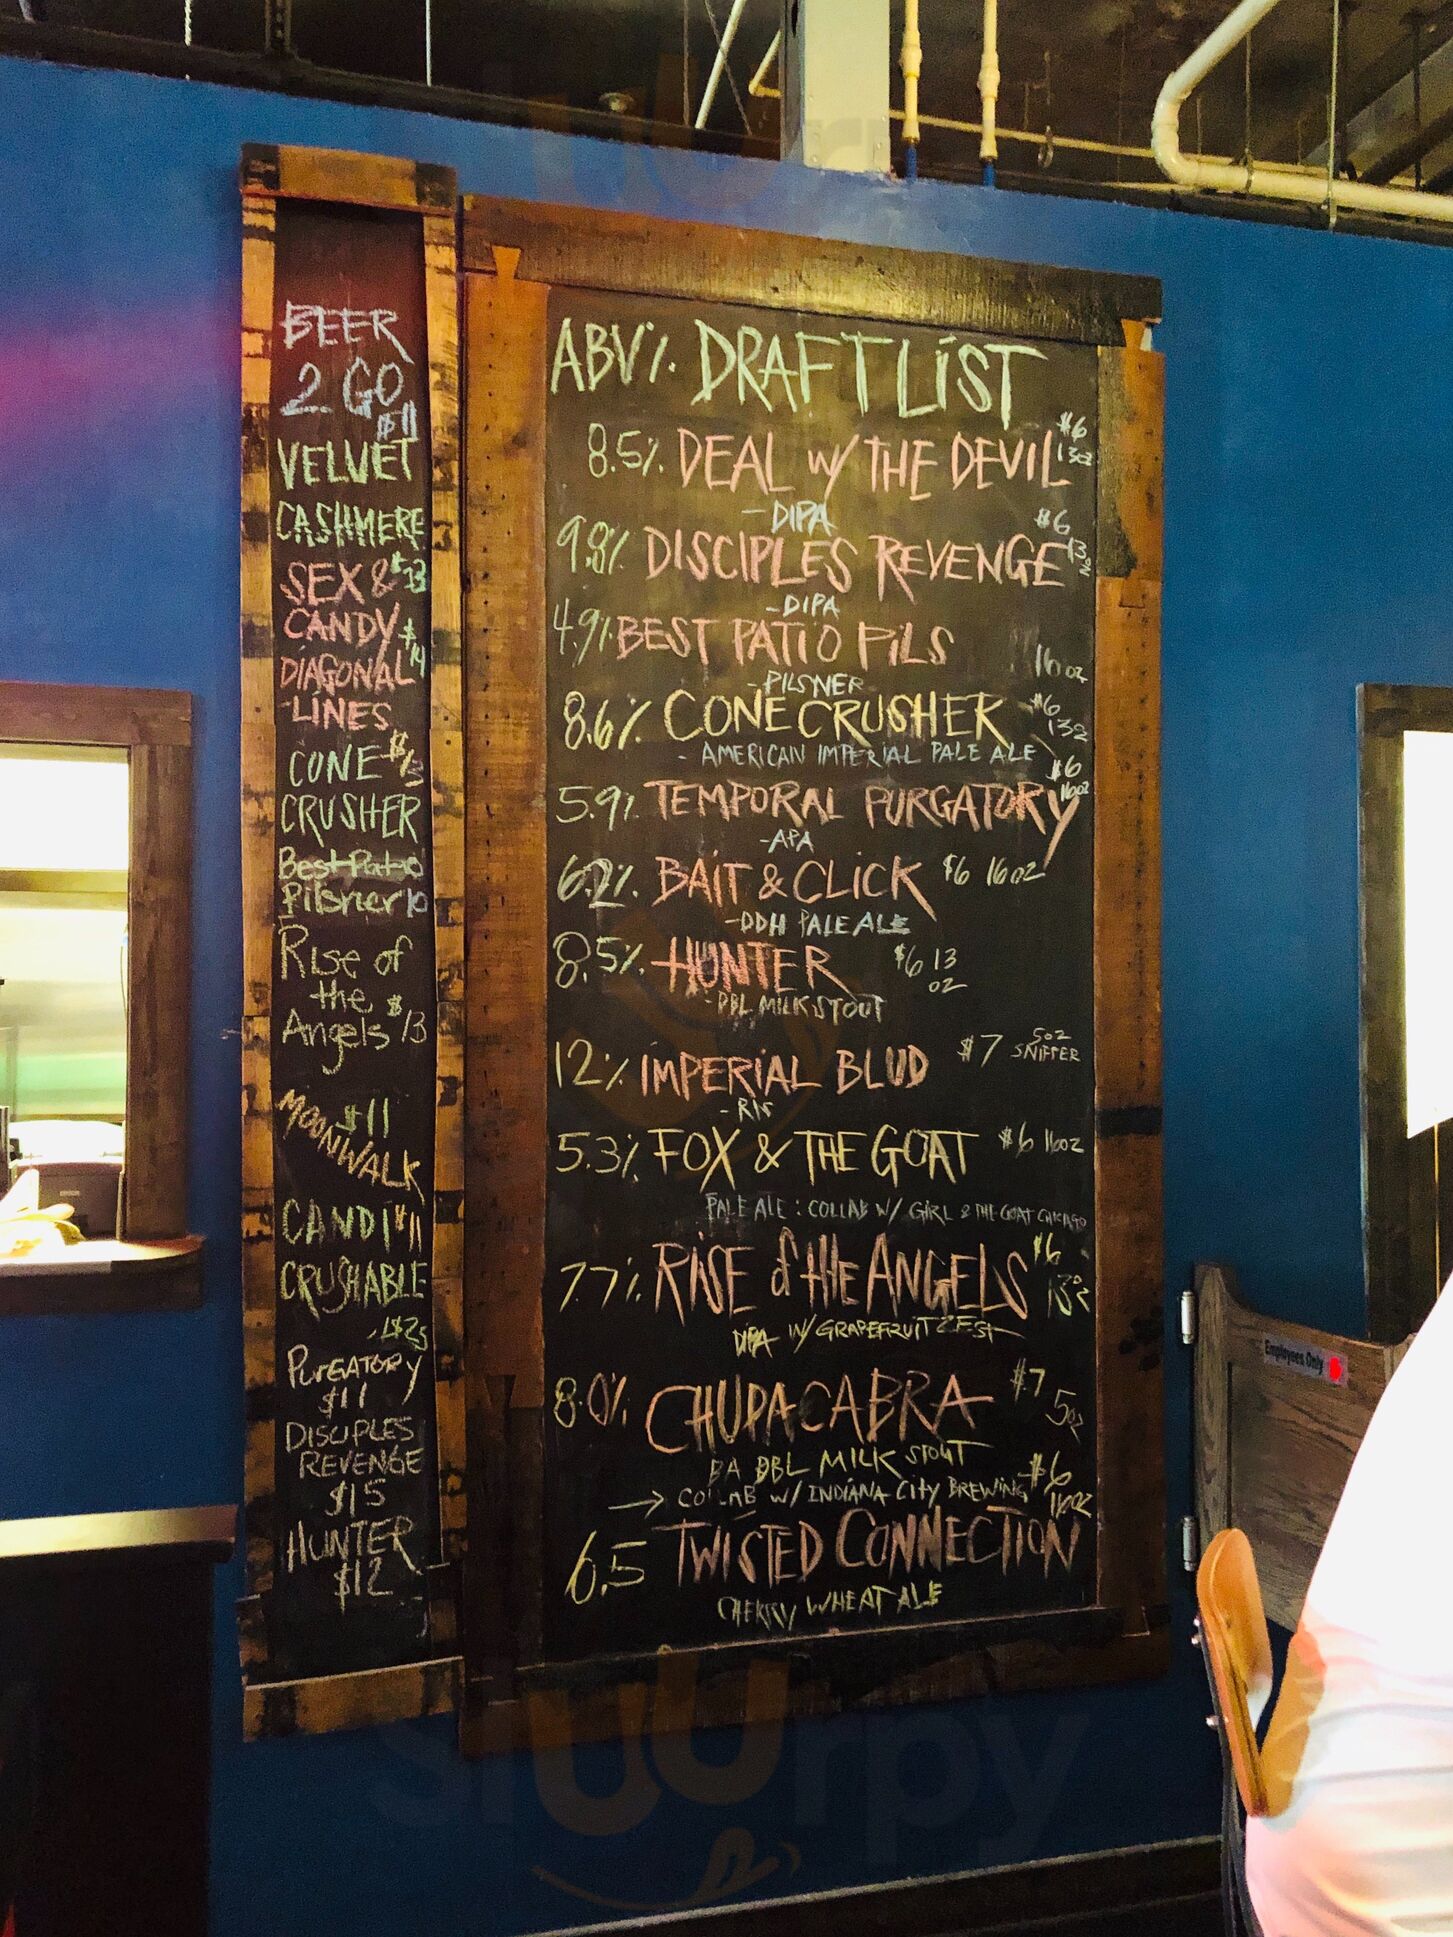 BEER
2 GO
$11
VELVET
CASHMERE
SEX & $13
CANDY $14
DIAGONAL
LINES
CONE $13
CRUSHER
Best Patio
Pilsner 10
Rise of
the
Angels $13
$11
MOONWALK
CANDI $11
CRUSHABLE
PURGATORY
$11
DISCIPLES
REVENGE
$15
HUNTER
$12
ABV% DRAFT LIST
8.5% DEAL W/ THE DEVIL $6 13oz
-DIPA
9.8% DISCIPLES REVENGE $6 13oz
-DIPA
4.9% BEST PATIO PILS 16oz
-PILSNER
8.6% CONE CRUSHER $6 13oz
- AMERICAN IMPERIAL PALE ALE
5.9% TEMPORAL PURGATORY $6 16oz
-APA
6.2% BAIT & CLICK $6 16oz
-DDH PALE ALE
8.5% HUNTER $6 13 oz
-DBL MILK STOUT
12% IMPERIAL BLUD $7 5oz SNIFTER
- RIS
5.3% FOX & THE GOAT $6 16oz
PALE ALE : COLLAB W/ GIRL & THE GOAT CHICAGO
7.7% RISE of the ANGELS $6 13oz
DIPA W/ GRAPEFRUIT ZEST
8.0% CHUPACABRA $7 5oz
BA DBL MILK STOUT
→ COLLAB W/ INDIANA CITY BREWING $6 16oz
6.5 TWISTED CONNECTION
CHERRY WHEAT ALE
Employees Only
sluurpy